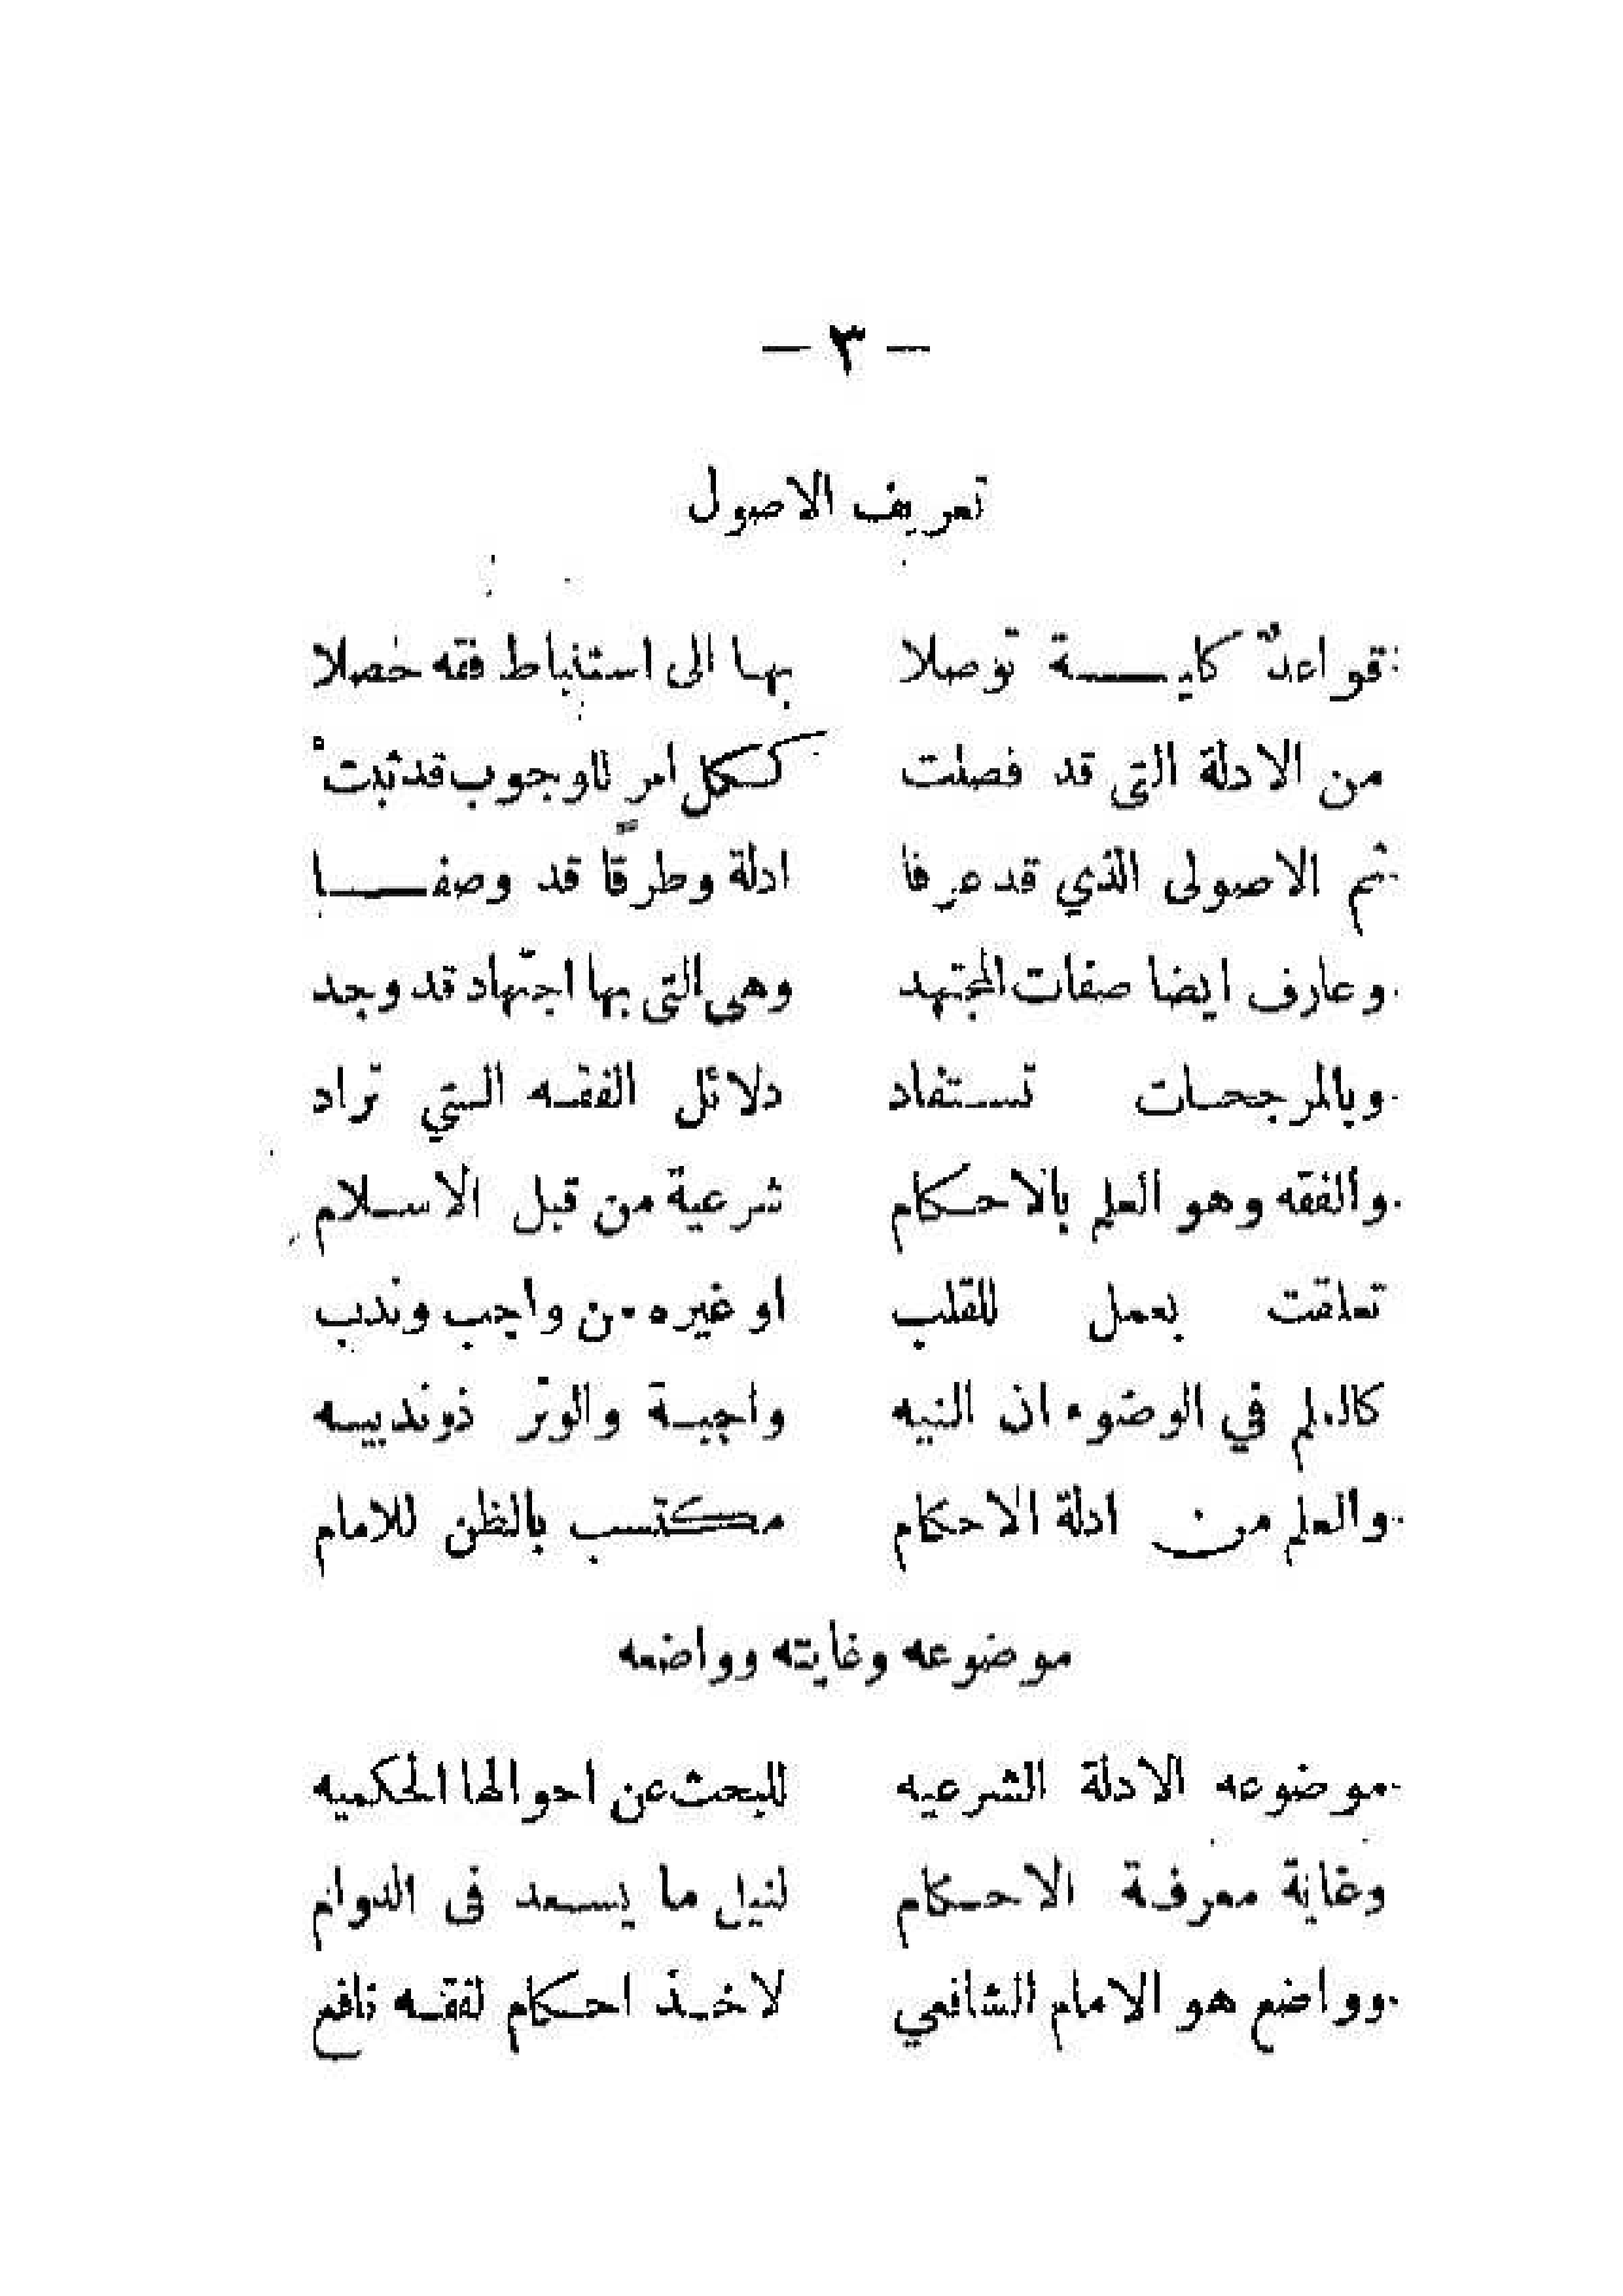 — ٣ —
تعريف الاصول
قواعدٌ كليـــة توصلا بها الى استنباط فقه حصلا
من الادلة التى قد فصلت ككل امرٍ للوجوب قد ثبتْ
ثم الاصولى الذي قد عرفا ادلة وطرقًا قد وصفــا
وعارف ايضا صفات المجتهد وهى التى بها اجتهاد قد وجد
وبالمرجحات تستفاد دلائل الفقه التي تراد
والفقه وهو العلم بالاحكام شرعية من قبل الاسلام
تعلقت بعمل للقلب او غيره من واجب وندب
كالعلم في الوضوء ان النيه واجبة والوتر ذو ندبيه
والعلم من ادلة الاحكام مكتسب بالظن للامام
موضوعه وغايته وواضعه
موضوعه الادلة الشرعيه للبحث عن احوالها الحكميه
وغاية معرفة الاحكام لنيل ما يسعد فى الدوام
وواضع هو الامام الشافعي لاخذ احكام لفقه نافع